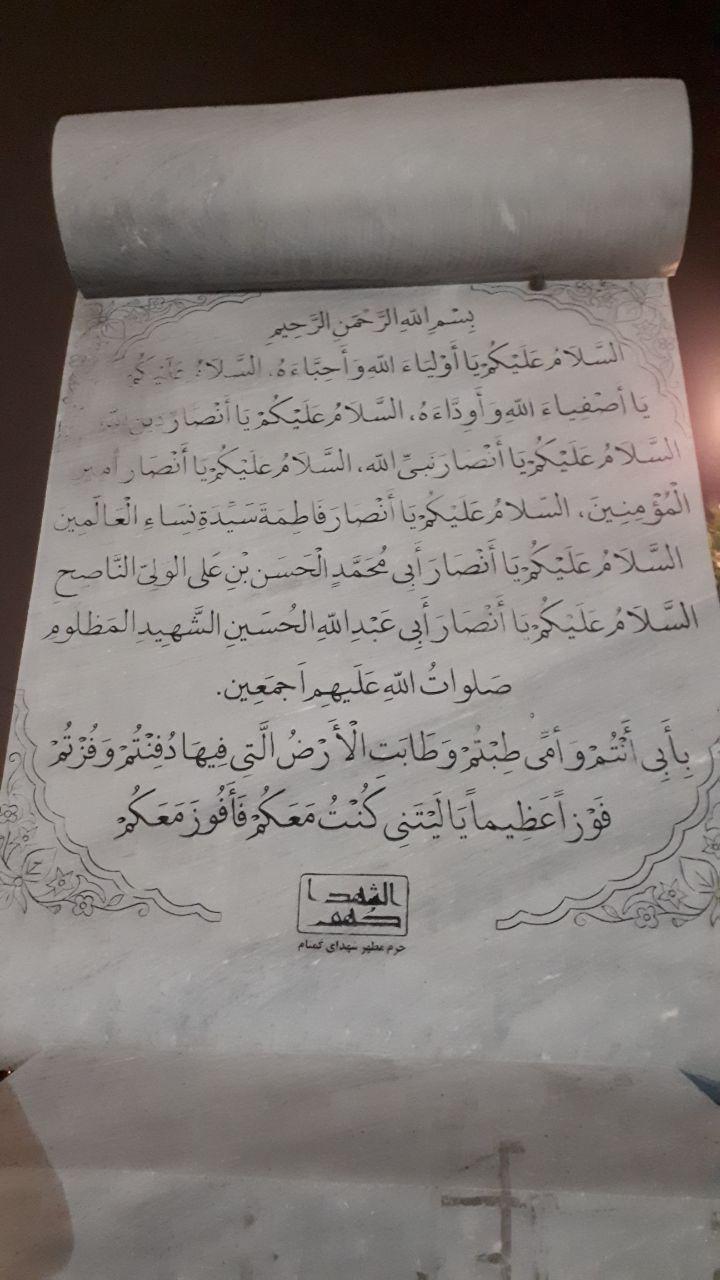 بِسْمِ اللهِ الرَّحْمَنِ الرَّحِيمِ
السَّلَامُ عَلَيْكُمْ يَا أَوْلِيَاءَ اللهِ وَأَحِبَّاءَهُ، السَّلَامُ عَلَيْكُمْ
يَا أَصْفِيَاءَ اللهِ وَأَوِدَّاءَهُ، السَّلَامُ عَلَيْكُمْ يَا أَنْصَارَ دِينِ اللهِ
السَّلَامُ عَلَيْكُمْ يَا أَنْصَارَ نَبِىِّ اللهِ، السَّلَامُ عَلَيْكُمْ يَا أَنْصَارَ أَمِيرِ
الْمُؤْمِنِينَ، السَّلَامُ عَلَيْكُمْ يَا أَنْصَارَ فَاطِمَةَ سَيِّدَةِ نِسَاءِ الْعَالَمِينَ
السَّلَامُ عَلَيْكُمْ يَا أَنْصَارَ أَبِى مُحَمَّدٍ الْحَسَنِ بْنِ عَلى الوَلِىّ النَّاصِحِ
السَّلَامُ عَلَيْكُمْ يَا أَنْصَارَ أَبِى عَبْدِ اللهِ الحُسَيْنِ الشَّهِيدِ المَظلومِ
صَلَواتُ اللهِ عَلَيهِم اَجمَعِين.
بِأَبِى أَنْتُمْ وَ أُمِّى طِبْتُمْ وَ طَابَتِ الْأَرْضُ الَّتِى فِيهَا دُفِنْتُمْ وَ فُزْتُمْ
فَوْزاً عَظِيماً يَا لَيْتَنِى كُنْتُ مَعَكُمْ فَأَفُوزَ مَعَكُمْ
الشهدا
كهف
حرم مطهر شهدای گمنام